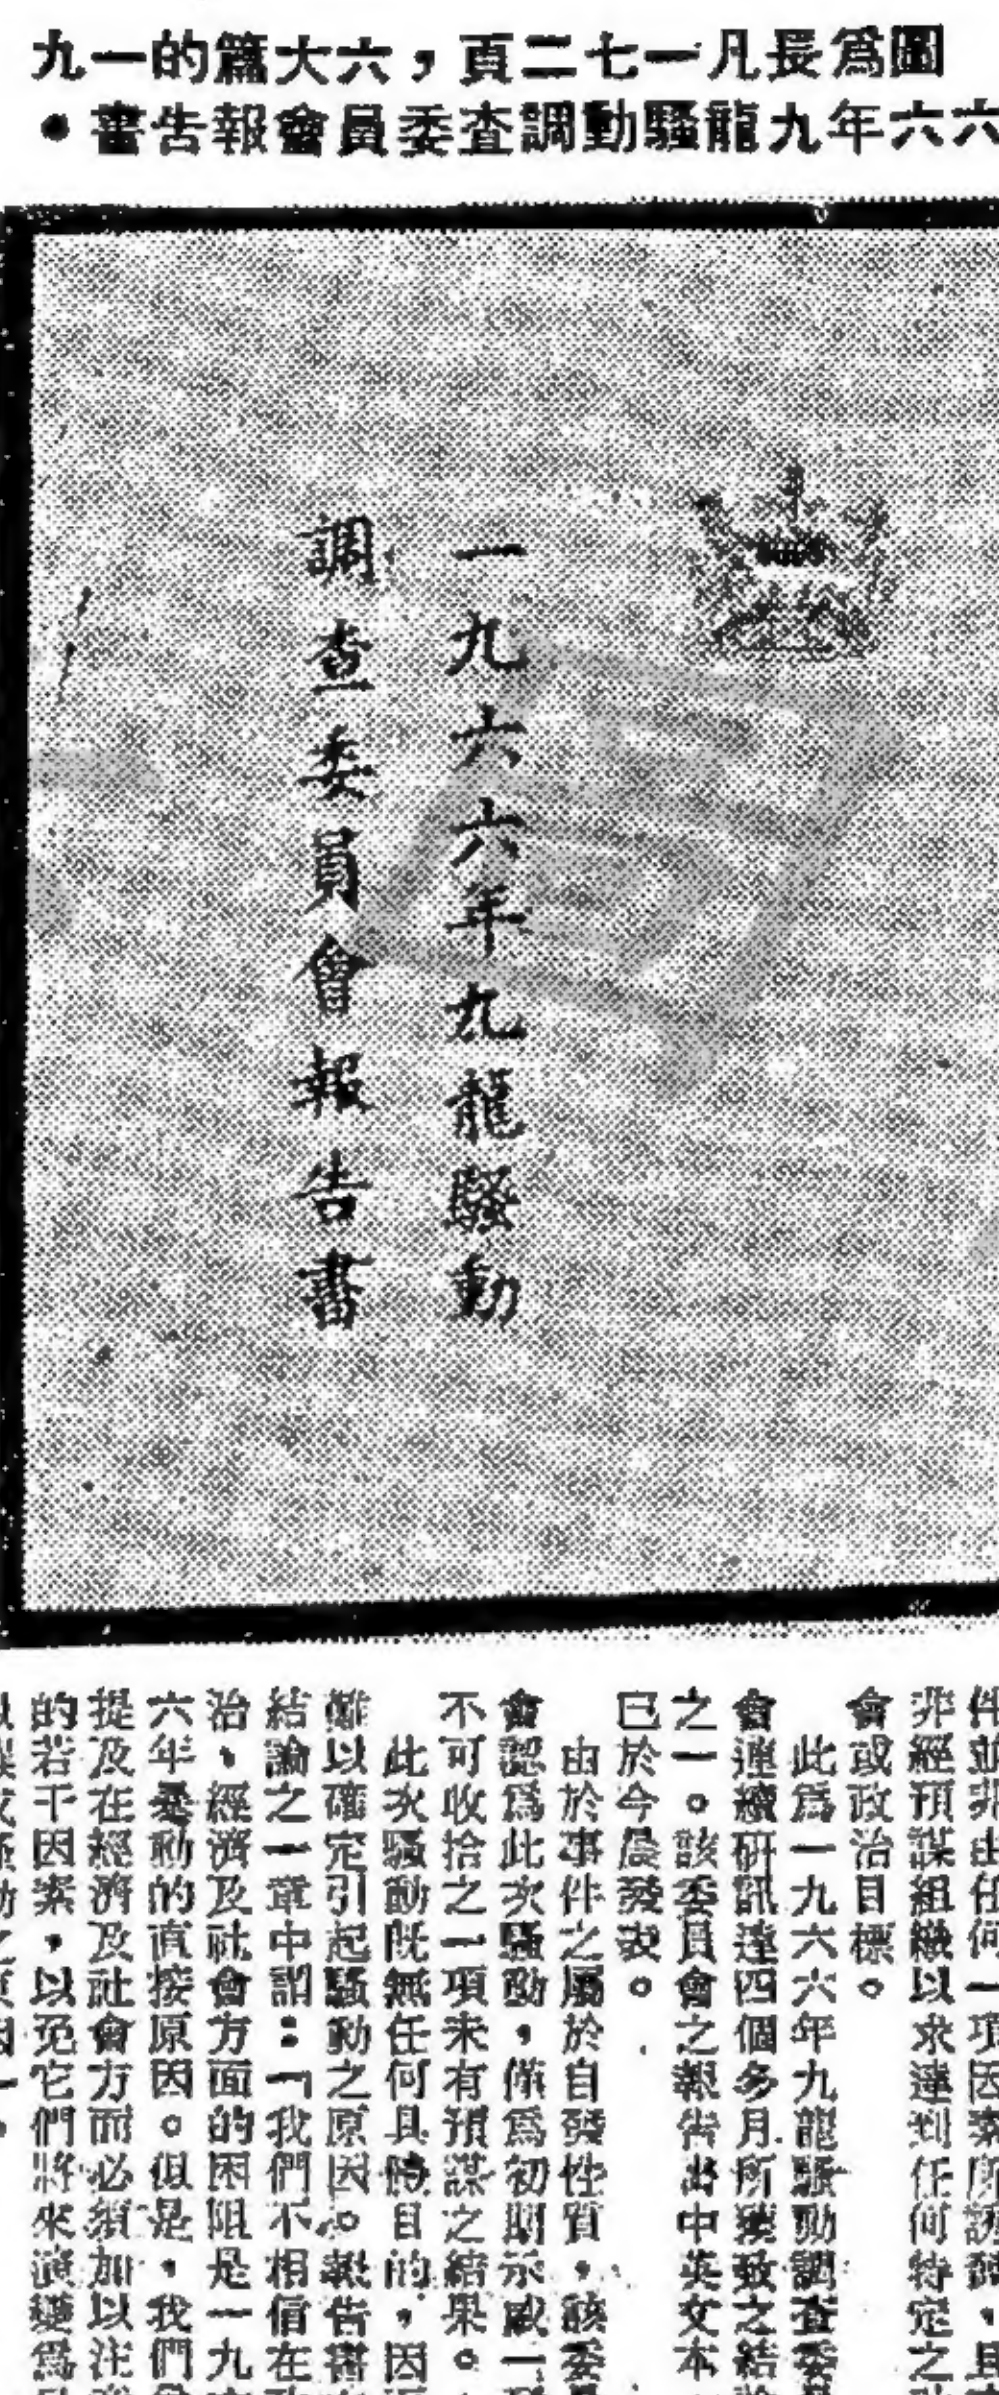 圖爲長凡一七二頁，六大篇的一九
六六年九龍騷動調查委員會報告書●
一九六六年九龍騷動
調查委員會報告書
件並非由任何一項因素所
非經預謀組織以求達到任何特定之
會或政治目標。
此爲一九六六年九龍騷動調查委員
會連續研訊達四個多月所獲致之結論
之一。該委員會之報告書中英文本
已於今晨發表。
由於事件之屬於自發性質，該委員
會認爲此次騷動，係爲初期示威一
不可收拾之一項未有預謀之結果。
此次騷動既無任何具體目的，因
難以確定引起騷動之原因。報告書
結論之一章中謂：「我們不相信在
治，經濟及社會方面的困阻是一九
六年暴動的直接原因。但是，我們
提及在經濟及社會方面必須加以注
的若干因素，以免它們將來演變爲